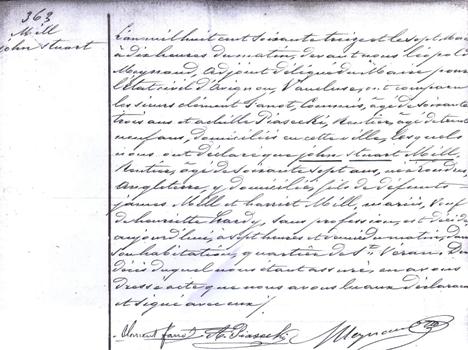 363
Mill
John Stuart
L'an mil huit cent soixante treize et le sept Mai
à dix heures du matin, devant nous Léopold
Meynaud, Adjoint délégué du Maire pour
l'état civil d'Avignon, Vaucluse, ont comparu
les sieurs Clément Fanot, Commis, âgé de soixante
trois ans et Achille Piasecki, Rentier, âgé de trente
neuf ans, domiciliés en cette ville, lesquels
nous ont déclaré que John Stuart Mill,
Rentier, âgé de soixante sept ans, né à Londres,
Angleterre, y domicilié, fils de défunts
James Mill et Harriet Mill, mariés, Veuf
de henriette hardy, sans profession, est décédé
aujourd'hui, à sept heures et demie du matin, dans
son habitation, quartier de St Véran. Du
décès duquel nous étant assuré, en avons
dressé acte que nous avons lu aux déclarants
et signé avec eux./.
Clément Fanot A. Piasecki Meynaud